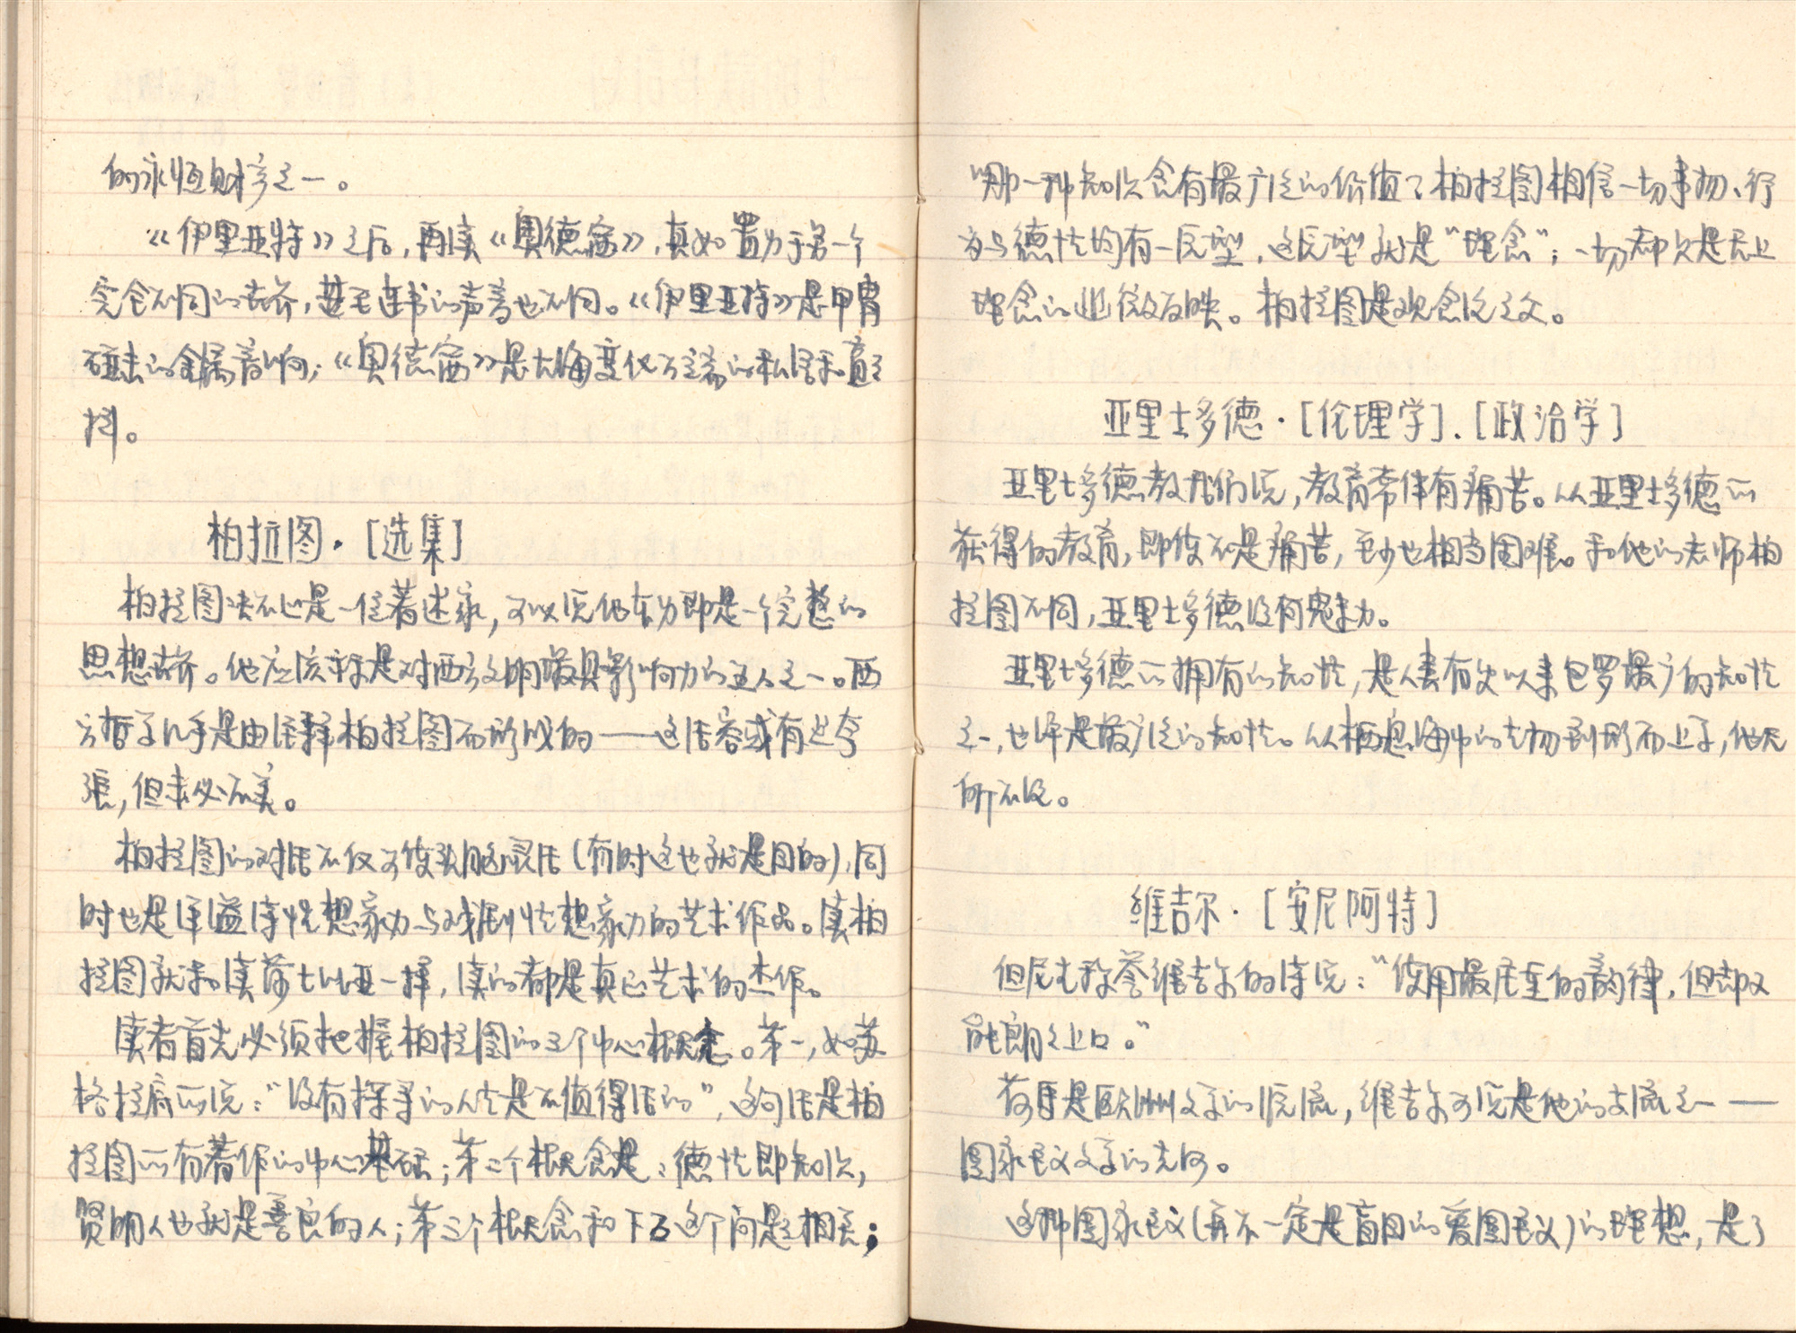 的永恒财产之一。
《伊里亚特》之后，再读《奥德赛》，真如置身于另一个
完全不同的世界，甚至连书的声音也不同。《伊里亚特》是甲胄
碰击的金属音响；《奥德赛》是大海变化万端的私语和直
抖。
柏拉图·[选集]
柏拉图决不止是一位著述家，可以说他本身即是一个完整的
思想世界。他应该算是对西方文明最具影响力的五人之一。西
方哲学几乎是由注释柏拉图而形成的——这话容或有些夸
张，但未必不真。
柏拉图的对话不仅可使头脑灵活（有时这也就是目的），同
时也是洋溢诗性想象力与戏剧性想象力的艺术作品。读柏
拉图就和读莎士比亚一样，读的都是真正艺术的杰作。
读者首先必须把握柏拉图的三个中心概念。第一，如苏
格拉底所说：“没有探寻的人生是不值得活的”，这句话是柏
拉图所有著作的中心基础；第二个概念是：德性即知识，
贤明人也就是善良的人；第三个概念和下面这个问题相关；
“那一种知识含有最广泛的价值？柏拉图相信一切事物、行
为与德性均有一原型，这原型就是“理念”；一切都只是无上
理念的些微反映。柏拉图是观念论之父。
亚里士多德·[伦理学]．[政治学]
亚里士多德教我们说，教育常伴有痛苦。从亚里士多德所
获得的教育，即使不是痛苦，至少也相当困难。和他的老师柏
拉图不同，亚里士多德没有魅力。
亚里士多德所拥有的知性，是人类有史以来包罗最广的知性
之一，也许是最广泛的知性。从栖息海中的生物到形而上学，他无
所不及。
维吉尔·[安尼阿特]
但尼生称誉维吉尔的诗说：“使用最庄重的韵律，但却又
能朗朗上口。”
荷马是欧洲文学的源流，维吉尔可说是他的支流之一——
国家主义文学的先河。
这种国家主义（并不一定是盲目的爱国主义）的理想，是了